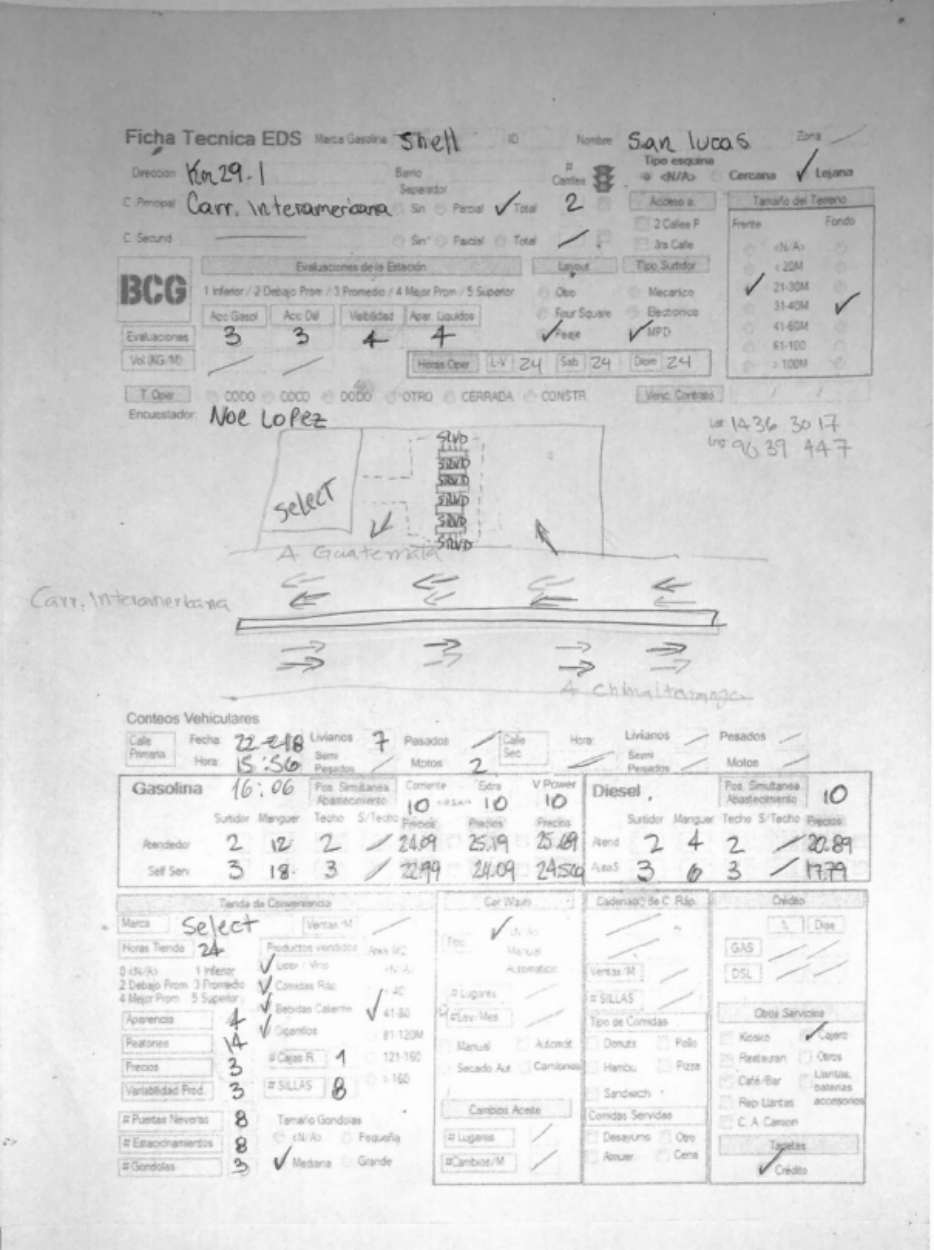 Ficha Tecnica EDS Marca Gasolina Shell ID Nombre San lucas Zona
Direccion Km 29.1 Barrio # Carriles Tipo esquina <N/A> Cercana Lejana
Separador
C. Principal Carr. Interamericana Sin Parcial Total 2 Acceso a: Tamaño del Terreno
2 Calles P Frente Fondo
C. Secund Sin Parcial Total 3ra Calle <N/A>
BCG Evaluaciones de la Estación Layout Tipo Surtidor < 20M
1 Inferior / 2 Debajo Prom / 3 Promedio / 4 Mejor Prom / 5 Superior Otro Mecanico 21-30M
Acc Gasol Acc Dsl Visibilidad Apar. Liquidos Four Square Electronico 31-40M
Evaluaciones 3 3 4 4 MPD 41-60M
61-100
Vol (KG/M) Horas Oper L-V 24 Sab 24 Dom 24 > 100M
T. Oper CODO COCO DODO OTRO CERRADA CONSTR. Venc. Contrato / /
Encuestador: Noe Lopez
Lat 1436 3017
Lng 9039 447
SRVD
SRVD
SRVD
SRVD
SRVD
SRVD
Select
A Guatemala
Carr. Interamericana
A Chimaltenango
Conteos Vehiculares
Calle Primaria Fecha 22-2-18 Livianos 7 Pesados Calle Sec Hora: Livianos Pesados
Hora: 15:56 Semi Pesados Motos 2 Semi Pesados Motos
Gasolina 16:06 Pos. Simultanea Abastecimiento Corriente 10 Extra 10 V Power 10 Diesel Pos. Simultanea Abastecimiento 10
Surtidor Manguer Techo S/Techo Precios Precios Precios Surtidor Manguer Techo S/Techo Precios
Atendedor 2 12 2 24.09 25.19 25.69 Atend 2 4 2 20.89
Self Serv 3 18 3 22.99 24.09 AutoS 3 6 3 17.79
Tienda de Conveniencia Car Wash Cadena(s) de C. Ráp. Crédito
Marca Select Ventas/M <N/A> % Dias
Horas Tienda 24 Productos vendidos Area M2 Tipo Manual GAS
0 <N/A> 1 Inferior Licor / Vino <N/A> Automatico Ventas/M DSL
2 Debajo Prom 3 Promedio Comidas Ráp < 40 # Lugares # SILLAS
4 Mejor Prom 5 Superior Bebidas Caliente 41-80 #Lav. Mes Otros Servicios
Aparencia 4 Cigarrillos 81-120M Tipo de Comidas Kiosko Cajero
Peatones 14 # Cajas R. 1 121-160 Manual Automát Donuts Pollo Restauran Otros
Precios 3 > 160 Secado Aut. Camiones Hambu Pizza Café/Bar Llantas, baterias accesorios
Variabilidad Prod. 3 # SILLAS 8 Sandwich Rep Llantas
# Puertas Neveras 8 Tamaño Gondolas Cambios Aceite Comidas Servidas C. A. Camion
# Estacionamientos 8 <N/A> Pequeña # Lugares Desayuno Otro Tarjetas
# Gondolas 3 Mediana Grande #Cambios/M Almuer. Cena Crédito